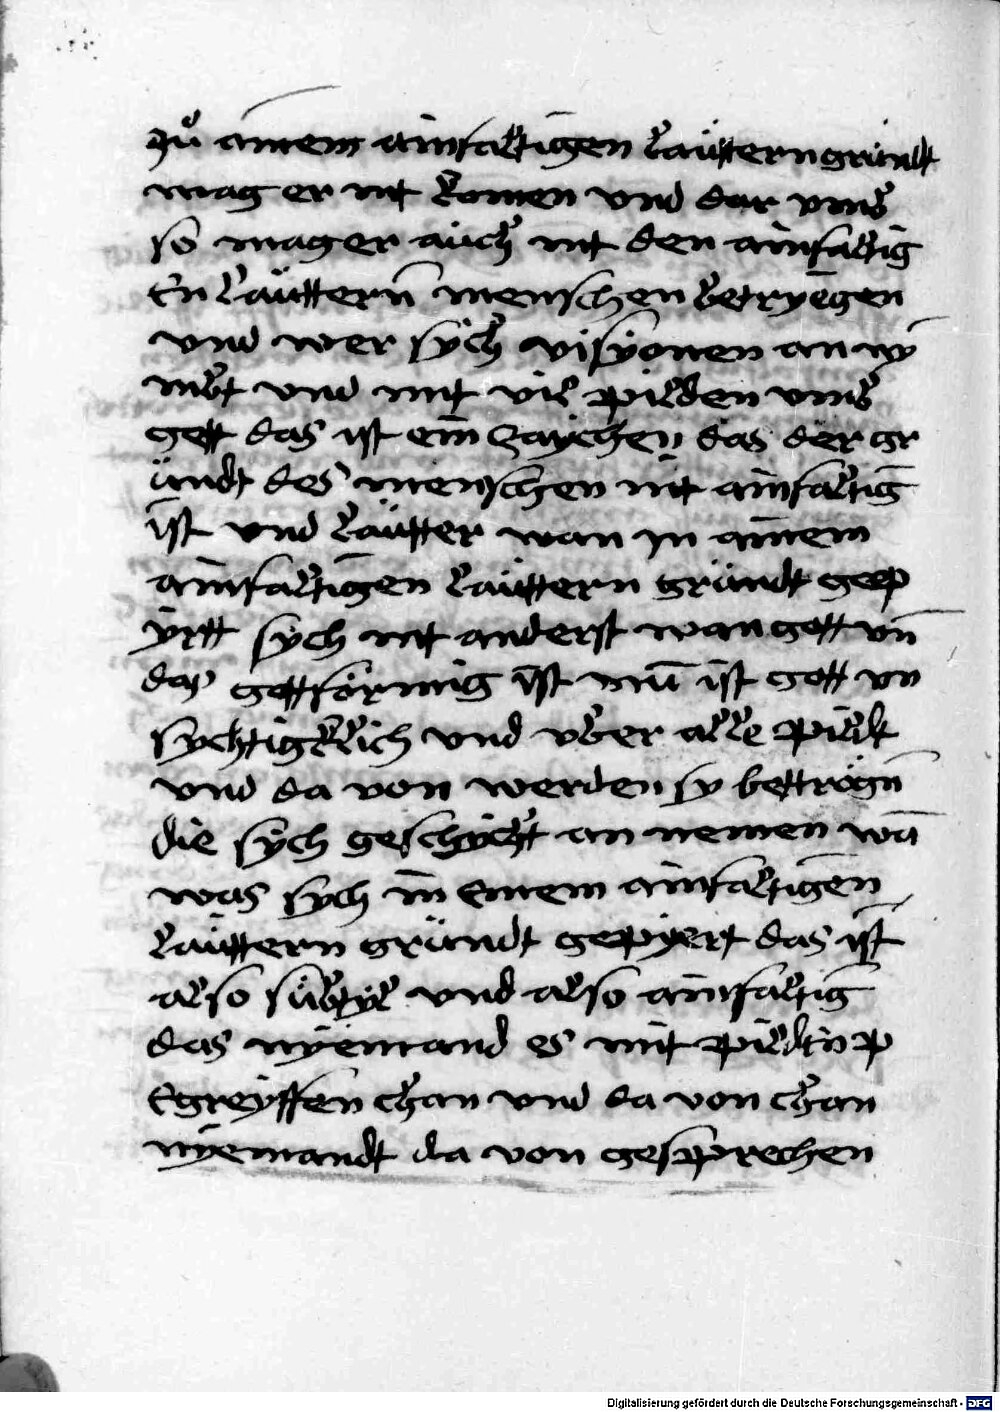 zů ainem ainfaltigen lauttern grundt
mag er nit komen vnd dar vmb
so mag er auch nit den ainfaltig
En lauttern menschen betryegen
vnd wer sych visyonen an ny
mbt vnd mit vil pilden vmb
gett das ist ein zaychen das der gr
undt des menschen nit ainfaltig
ist vnd lautter wan jn ainem
ainfaltigen lauttern grundt gep
yrtt sych nit anderst wan gott vn̄
das gottförmig ist nun ist gott vn
sychtigklich vnd vber alle pildt
vnd da von werden sy bettrogn̄
die sych geschycht an nemen wā
was sych in Einem ainfaltigen
lauttern grundt gepyert das ist
also subtyl vnd also ainfaltig
das nyemand es mit pildn̄ p
Egreyffen chan vnd da von chan
nyemandt da von gesprechen
Digitalisierung gefördert durch die Deutsche Forschungsgemeinschaft - DFG